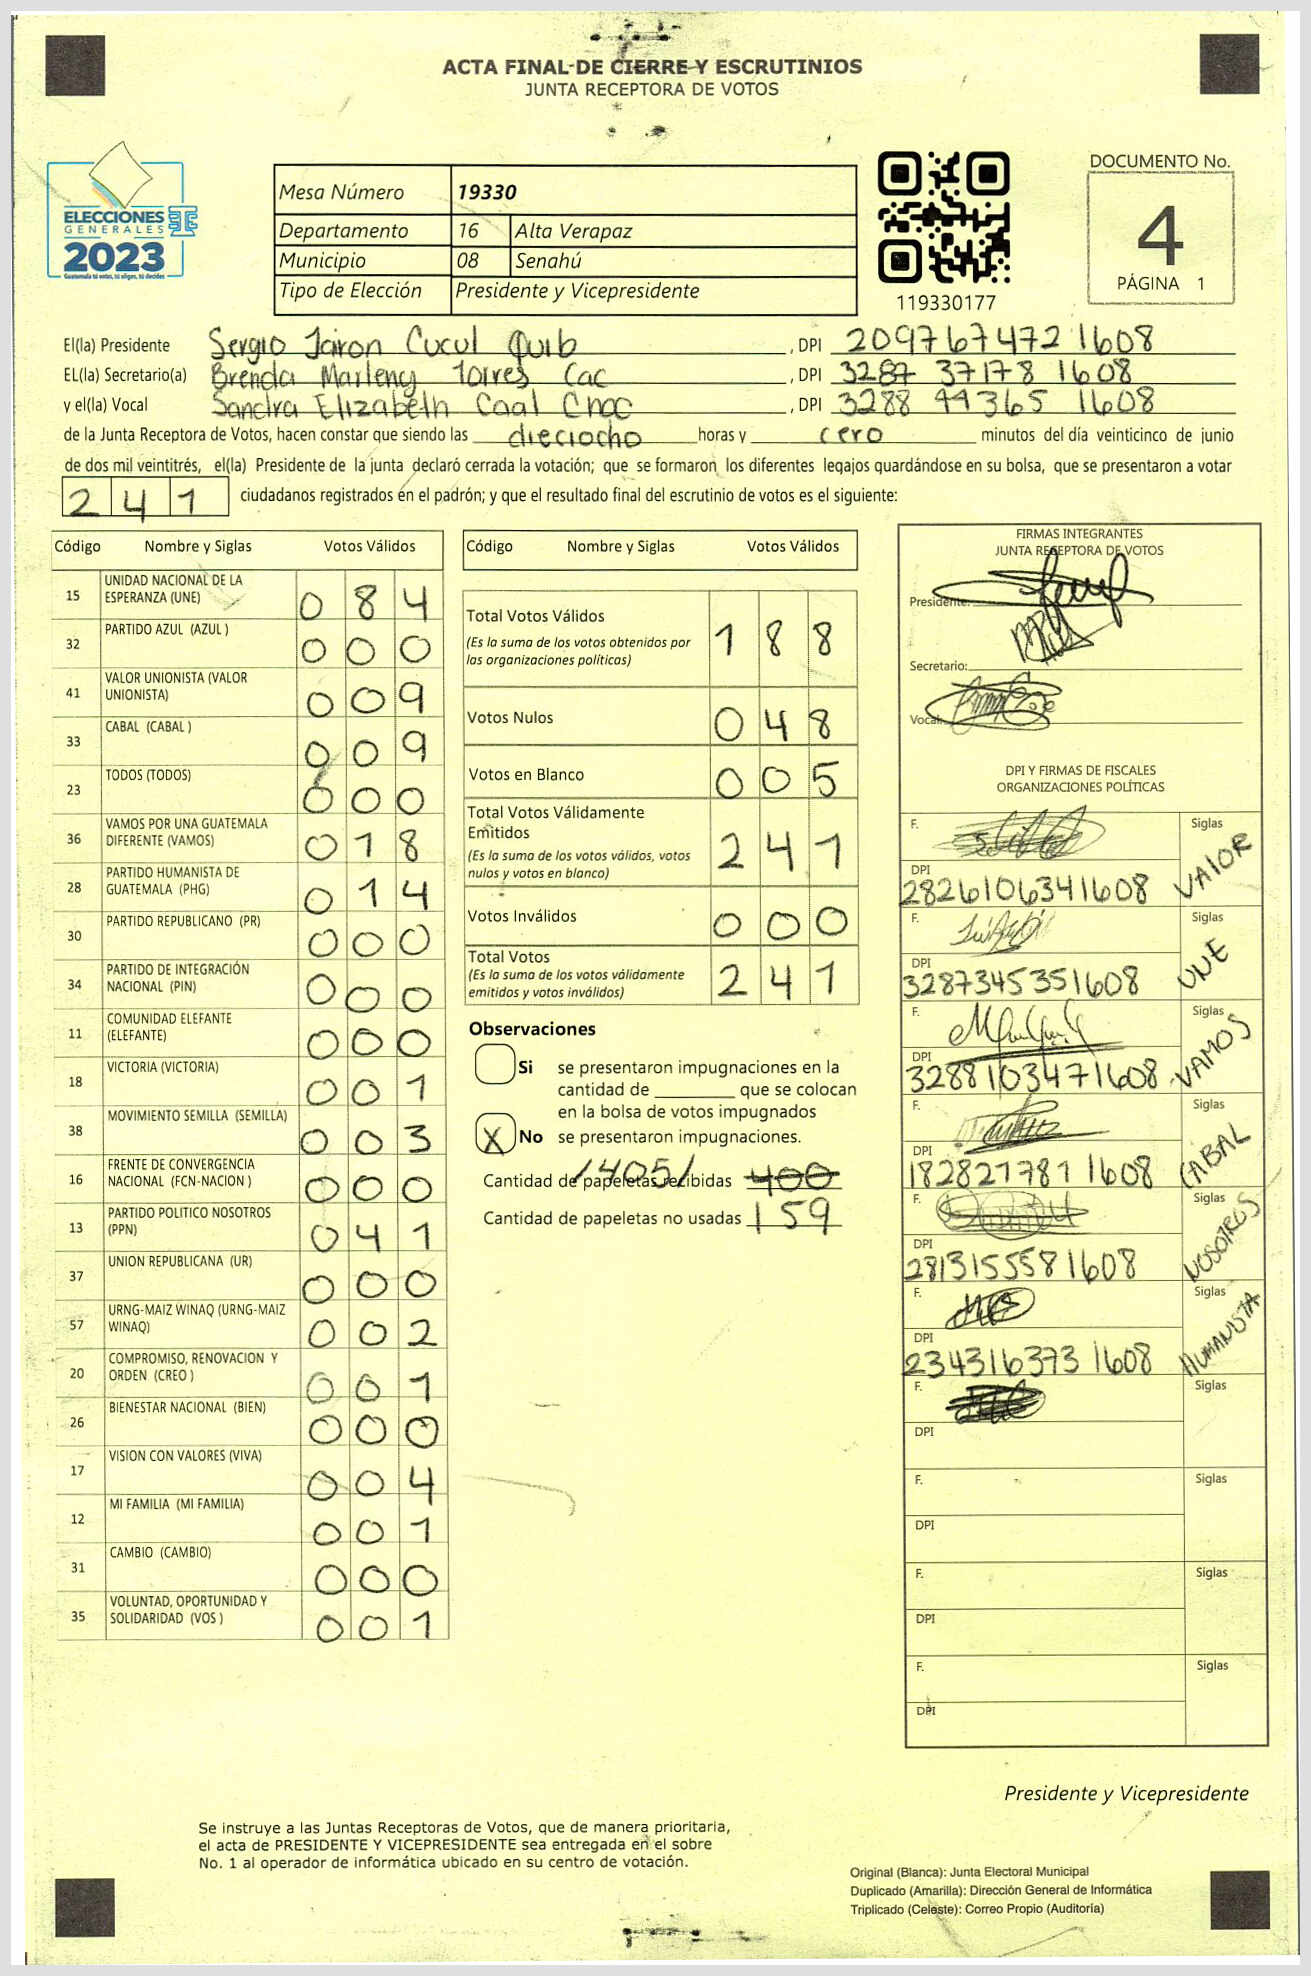 ACTA FINAL DE CIERRE Y ESCRUTINIOS
JUNTA RECEPTORA DE VOTOS
ELECCIONES
GENERALES
2023
Guatemala tú votas, tú eliges, tú decides
Mesa Número 19330
Departamento 16 Alta Verapaz
Municipio 08 Senahú
Tipo de Elección Presidente y Vicepresidente
119330177
DOCUMENTO No.
4
PÁGINA 1
El(la) Presidente Sergio Jairon Cucul Quib, DPI 2097674721608
EL(la) Secretario(a) Brenda Marleny Torres Cac, DPI 3287 37178 1608
y el(la) Vocal Sandra Elizabeth Caal Choc, DPI 3288 44365 1608
de la Junta Receptora de Votos, hacen constar que siendo las dieciocho horas y cero minutos del día veinticinco de junio
de dos mil veintitrés, el(la) Presidente de la junta declaró cerrada la votación; que se formaron los diferentes legajos quardándose en su bolsa, que se presentaron a votar
241 ciudadanos registrados en el padrón; y que el resultado final del escrutinio de votos es el siguiente:
Código Nombre y Siglas Votos Válidos
15 UNIDAD NACIONAL DE LA ESPERANZA (UNE) 084
32 PARTIDO AZUL (AZUL ) 000
41 VALOR UNIONISTA (VALOR UNIONISTA) 009
33 CABAL (CABAL ) 009
23 TODOS (TODOS) 000
36 VAMOS POR UNA GUATEMALA DIFERENTE (VAMOS) 018
28 PARTIDO HUMANISTA DE GUATEMALA (PHG) 014
30 PARTIDO REPUBLICANO (PR) 000
34 PARTIDO DE INTEGRACIÓN NACIONAL (PIN) 000
11 COMUNIDAD ELEFANTE (ELEFANTE) 000
18 VICTORIA (VICTORIA) 001
38 MOVIMIENTO SEMILLA (SEMILLA) 003
16 FRENTE DE CONVERGENCIA NACIONAL (FCN-NACION ) 000
13 PARTIDO POLITICO NOSOTROS (PPN) 041
37 UNION REPUBLICANA (UR) 000
57 URNG-MAIZ WINAQ (URNG-MAIZ WINAQ) 002
20 COMPROMISO, RENOVACION Y ORDEN (CREO ) 001
26 BIENESTAR NACIONAL (BIEN) 000
17 VISION CON VALORES (VIVA) 004
12 MI FAMILIA (MI FAMILIA) 001
31 CAMBIO (CAMBIO) 000
35 VOLUNTAD, OPORTUNIDAD Y SOLIDARIDAD (VOS ) 001
Código Nombre y Siglas Votos Válidos
Total Votos Válidos 188
(Es la suma de los votos obtenidos por
las organizaciones políticas)
Votos Nulos 048
Votos en Blanco 005
Total Votos Válidamente
Emitidos 241
(Es la suma de los votos válidos, votos
nulos y votos en blanco)
Votos Inválidos 000
Total Votos 241
(Es la suma de los votos válidamente
emitidos y votos inválidos)
Observaciones
Si se presentaron impugnaciones en la
cantidad de ________ que se colocan
en la bolsa de votos impugnados
X No se presentaron impugnaciones.
Cantidad de papeletas recibidas /405/ 400
Cantidad de papeletas no usadas 159
FIRMAS INTEGRANTES
JUNTA RECEPTORA DE VOTOS
Presidente:
Secretario:
Vocal:
DPI Y FIRMAS DE FISCALES
ORGANIZACIONES POLÍTICAS
F. Siglas VALOR
DPI 2826106341608
F. Siglas UNE
DPI 3287345351608
F. Siglas VAMOS
DPI 3288103471608
F. Siglas CABAL
DPI 1828217811608
F. Siglas NOSOTROS
DPI 2813155581608
F. Siglas HUMANISTA
DPI 2343163731608
F. Siglas
DPI
F. Siglas
DPI
F. Siglas
DPI
F. Siglas
DPI
Presidente y Vicepresidente
Se instruye a las Juntas Receptoras de Votos, que de manera prioritaria,
el acta de PRESIDENTE Y VICEPRESIDENTE sea entregada en el sobre
No. 1 al operador de informática ubicado en su centro de votación.
Original (Blanca): Junta Electoral Municipal
Duplicado (Amarilla): Dirección General de Informática
Triplicado (Celeste): Correo Propio (Auditoría)